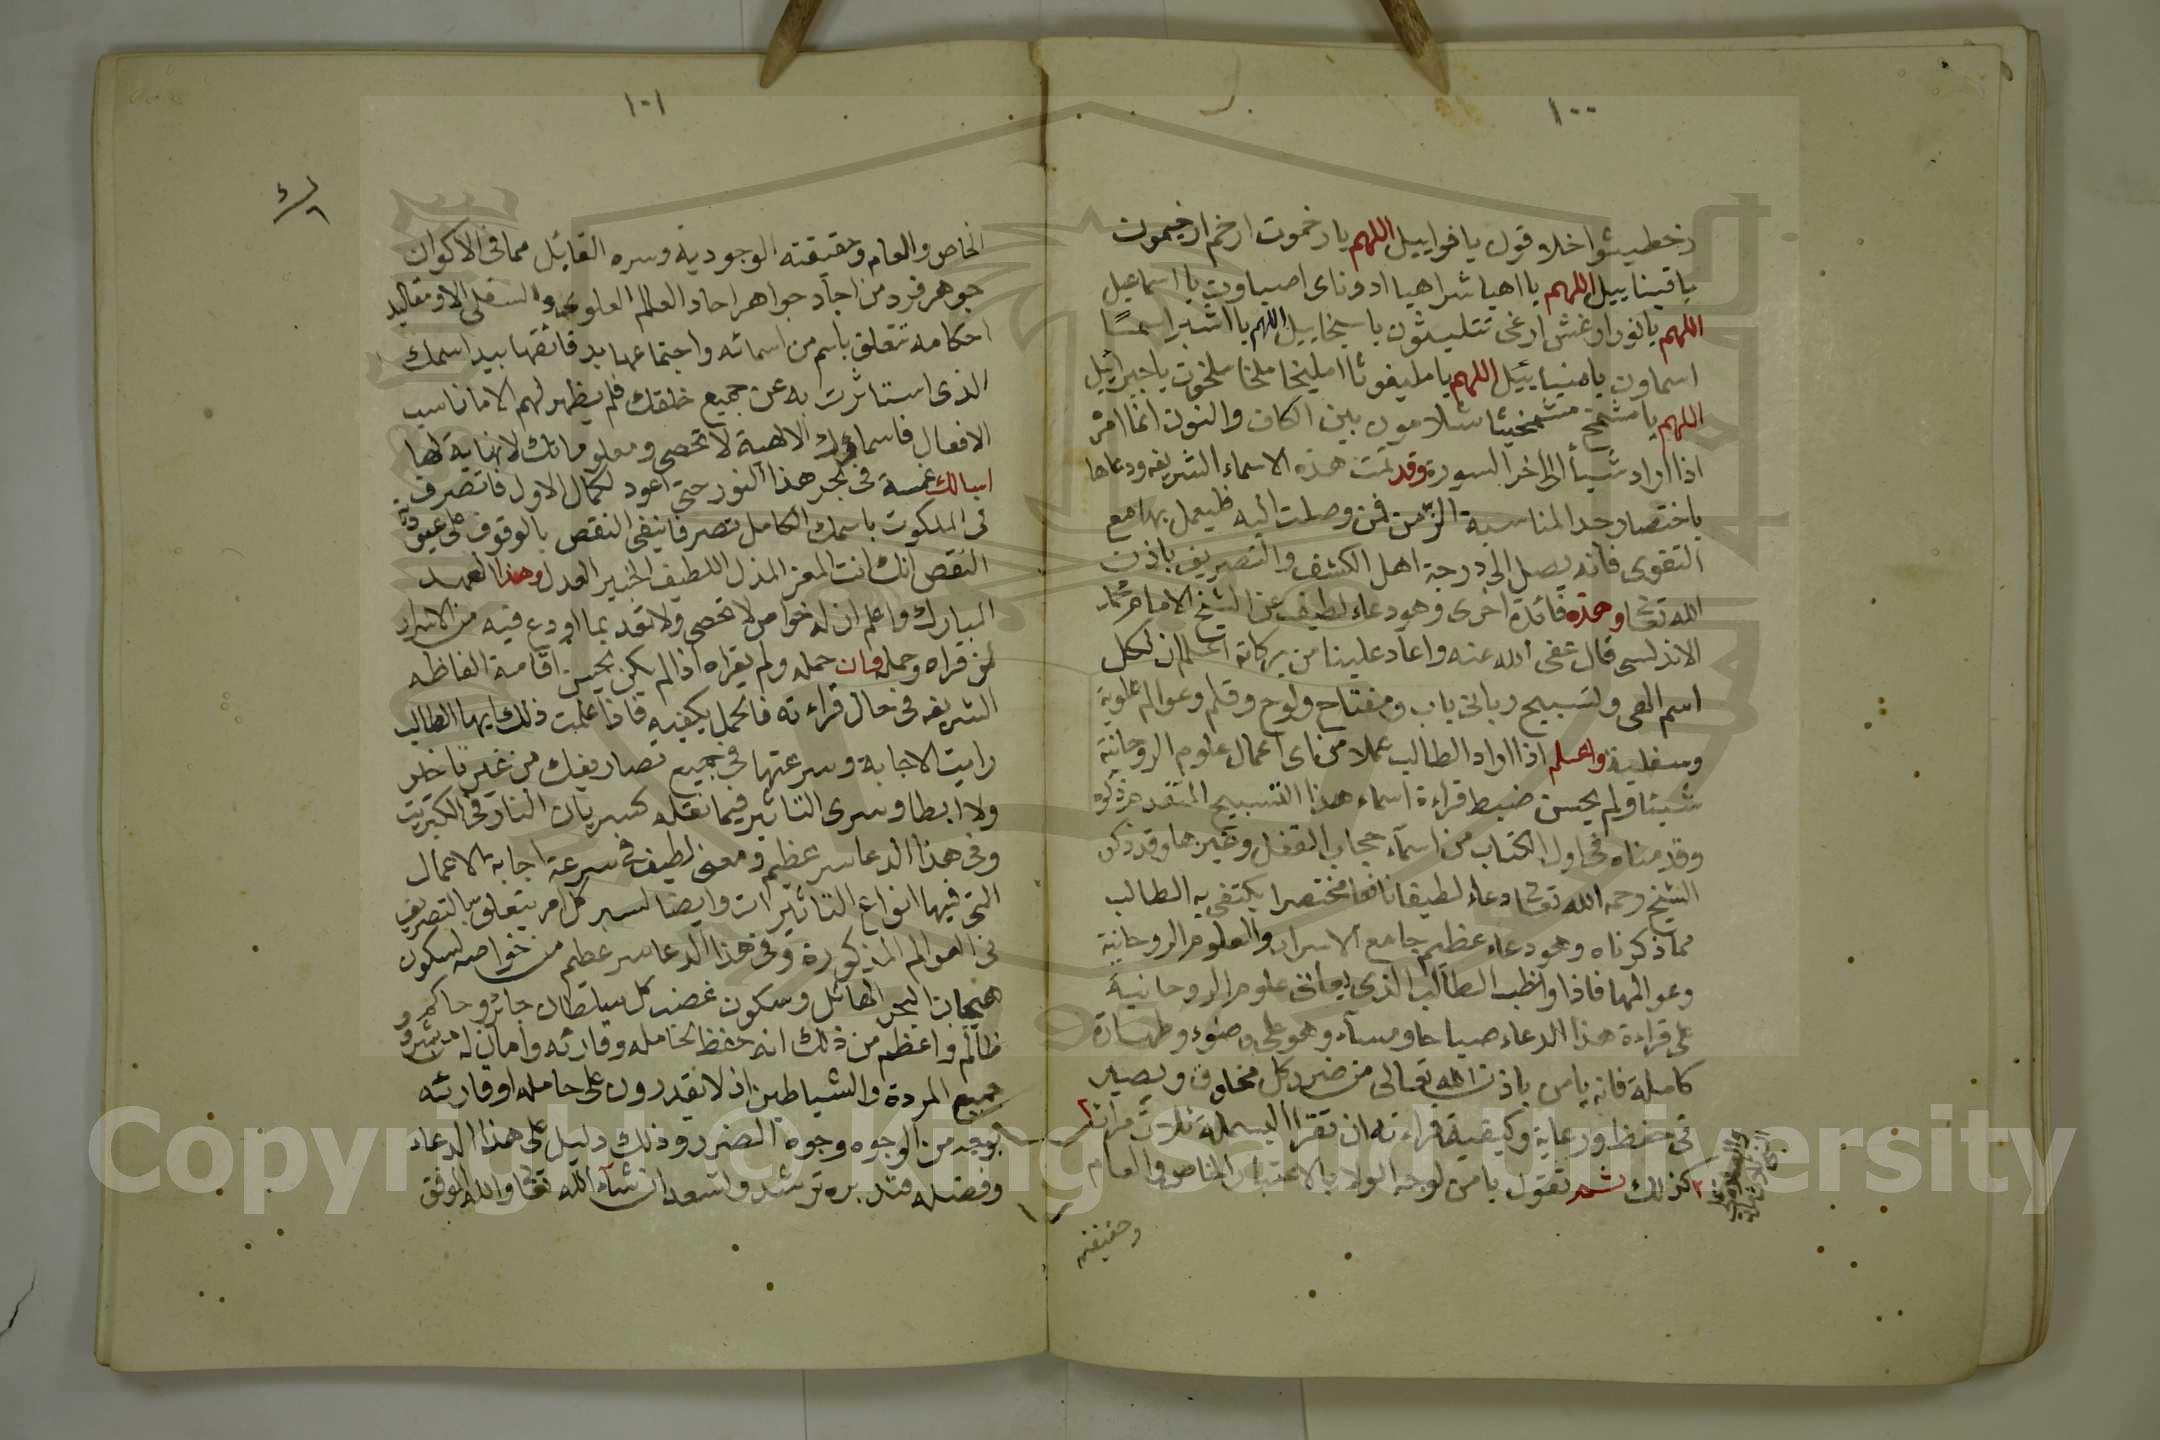 ١٠٠
دخطيشوا خلاه قول يا فواييل اللهم يا رخموت ارخم ارخيموت
يا قيناييل اللهم يا اهيا شراهيا ادوناى اصباوت يا اسماعيل
اللهم يا نور اوغش ارغى تتليثون يا سيخاييل اللهم يا اشبر اسمسا
اسماون يا منياييل اللهم يا مليفوثا امليخا ملخا ملخوت يا جبرائيل
اللهم يا مشمخ مشمخيثا شلامون بين الكاف والنون انما امره
اذا اراد شيأ الى اخر السورة وقد تمت هذه الاسماء الشريفه ودعاها
باختصار جدا لمناسبة الزمن فمن وصلت اليه فليعمل بها مع
التقوى فانه يصل الى درجة اهل الكشف والتصريف باذن
الله تعا وهذه فائدة اخرى وهو دعاء لطيف عن الشيخ الامام محمد
الاندلسى قال عفى الله عنه واعاد علينا من بركاته اعلم ان لكل
اسم الهى ولتسبيح ربانى باب ومفتاح ولوح وقلم وعوالم علوية
وسفلية واعلم اذا اراد الطالب عملا من اى اعمال علوم الروحانية
شيئا ولم يحسن ضبط قراءة اسماء هذا التسبيح المتقدم ذكره
وقدمناه فى اول الكتاب من اسماء حجاب القفل وغيرها وقد ذكر
الشيخ رحمه الله تعا دعاء لطيفا نافعا مختصرا يكتفى به الطالب
مما ذكرناه وهو دعاء عظيم جامع الاسرار والعلوم الروحانية
وعوالمها فاذا واظب الطالب الذى يعانى علوم الروحانية
على قراءة هذا الدعاء صباحا ومساء وهو على وضوء وطهارة
كاملة فانه يامن باذن الله تعالى من ضرر كل مخلوق ويصير
فى حفظ ورعاية وكيفية قراءته ان تقرا البسملة ثلاث مرات
كذلك ثم تقول يا من لوجه الولا بالاعتبار الخاص والعام
وحقيقته
١٠١
الخاص والعام وحقيقته الوجودية وسره القابل مما فى الاكوان
جوهر فرد من اجاد جواهر احاد العالم العلوى والسفلى الا ومقاليد
احكامه تتعلق باسم من اسمائه واجتماعها بدقائقها بيد اسمك
الذى استاثرت به عن جميع خلقك فلم يظهر لهم الا ما ناسب
الافعال فاسماؤك الالهية لا تحصى ومعلوماتك لا نهاية لها
اسالك غمسة فى بحر هذا النور حتى اعود لكمال الاول فاتصرف
فى الملكوت باسمك الكامل تصرفا ينفى النقص بالوقوف على عبودية
النقص انك انت المعز المذل اللطيف الخبير العدل وهذا العهد
المبارك واعلم ان له خواص لا تحصى ولا تعد بما اودع فيه من الاسرار
لمن قراه وحمله وان حمله ولم يقراه اذا لم يكن يحسن اقامة الفاظه
الشريفه فى حال قراءته فالحمل يكفيه فاذا علمت ذلك ايها الطالب
رايت الاجابة وسرعتها فى جميع تصاريفك من غير تاخير
ولا ابطا وسرى التاثير فيما تفعله كسريان النار فى الكبريت
وفى هذا الدعا سر عظم ومعنى لطيف فى سرعة اجابة الاعمال
التى فيها انواع التاثيرات وايضا لسير كل امر يتعلق بالتصريف
فى العوالم المذكورة وفى هذا الدعا سر عظيم من خواصه لسكون
هيجان البحر الهائل وسكون غضب كل سلطان جائر وحاكم
ظالم واعظم من ذلك انه حفظ لحامله وقارئه وامان له من شر
جميع المردة والشياطين اذ لا يقدرون على حامله او قارئه
بوجه من الوجوه وجوه الضرر وذلك دليل على هذا الدعاء
وفضله فتدبره ترشد وتسعد ان شاء الله تعا والله الموفق
Copyright © King Saud University